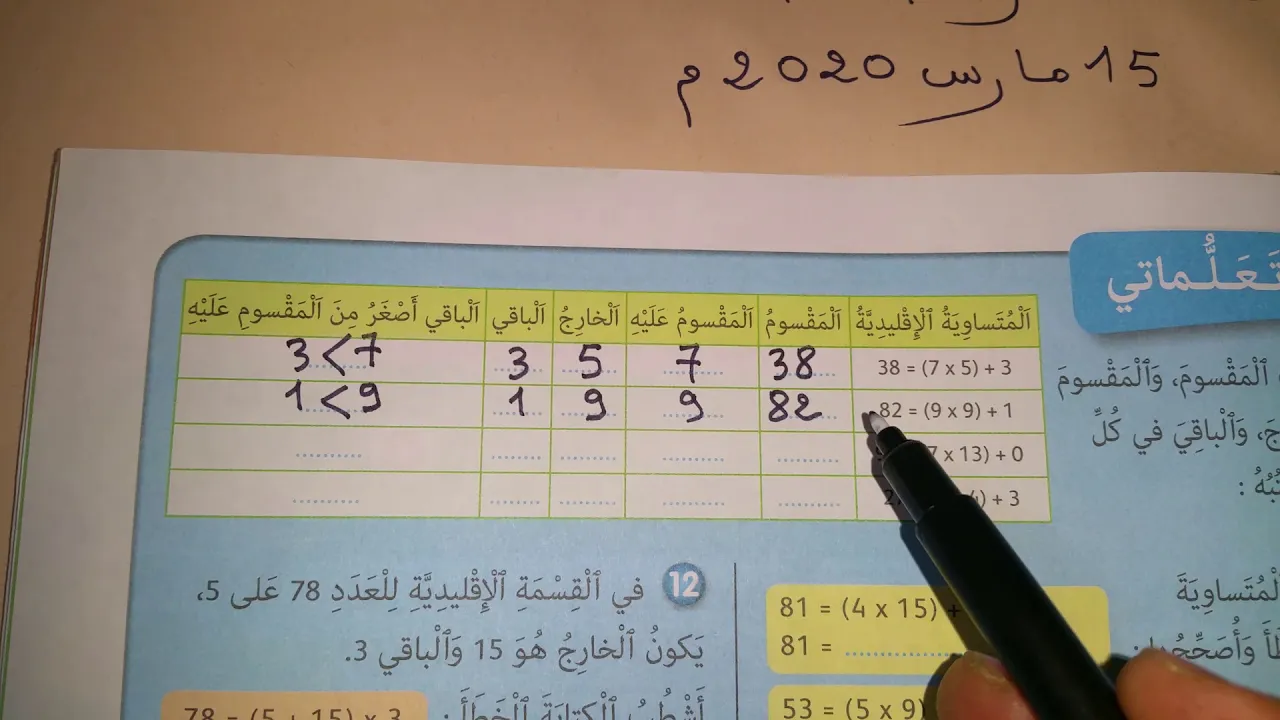 15 مارس 2020 م
تَعَلُّماتي
اَلْمُتَساوِيَةُ ٱلْإِقْليدِيَّةُ اَلْمَقْسومُ اَلْمَقْسومُ عَلَيْهِ اَلْخارِجُ اَلْباقي اَلْباقي أَصْغَرُ مِنَ ٱلْمَقْسومِ عَلَيْهِ
38 = (7 x 5) + 3 38 7 5 3 3<7
82 = (9 x 9) + 1 82 9 9 1 1<9
7 x 13) + 0
) + 3
ٱلْمَقْسومَ، وَٱلْمَقْسومَ
وَٱلْباقِيَ في كُلِّ
81 = (4 x 15) +
81 =
53 = (5 x 9)
وَأُصَحِّحُها :
12 في ٱلْقِسْمَةِ ٱلْإِقْليدِيَّةِ لِلْعَدَدِ 78 عَلى 5،
يَكونُ ٱلْخارِجُ هُوَ 15 وَٱلْباقي 3.
أَشْطُبُ ٱلْكِتابَةَ ٱلْخَطَأَ :
78 = (5 + 15) x 3